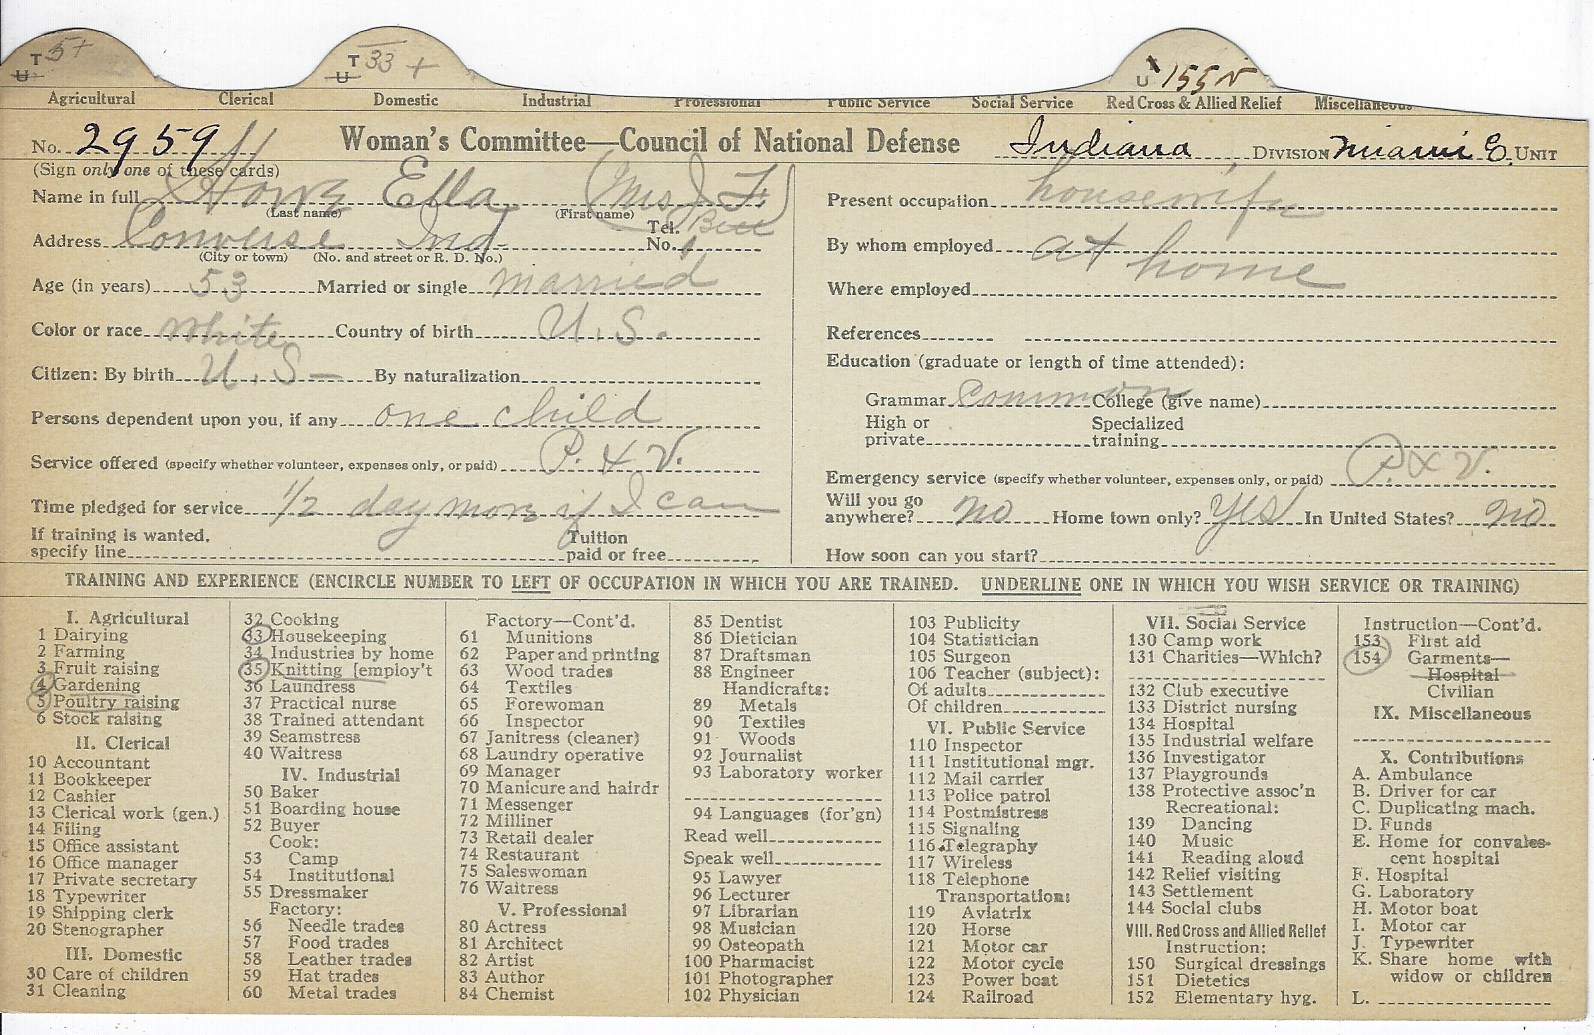 T 5+
U
T 33 +
U
U 155 N
Agricultural Clerical Domestic Industrial Professional Public Service Social Service Red Cross & Allied Relief Miscellaneous
No. 2959 Woman's Committee—Council of National Defense Indiana DIVISION Miami E. UNIT
(Sign only one of these cards)
Name in full Ella (Mrs J F.)
(Last name) (First name)
Address Converse Ind Tel. No. Bell
(City or town) (No. and street or R. D. No.)
Age (in years) 53 Married or single married
Color or race White Country of birth U.S.
Citizen: By birth U.S- By naturalization
Persons dependent upon you, if any one child
Service offered (specify whether volunteer, expenses only, or paid) P. & V.
Time pledged for service 1/2 day more if I can
If training is wanted, specify line Tuition paid or free
Present occupation housewife
By whom employed at home
Where employed
References
Education (graduate or length of time attended):
Grammar Common College (give name)
High or private Specialized training
Emergency service (specify whether volunteer, expenses only, or paid) P. & V.
Will you go anywhere? no Home town only? Yes In United States? no
How soon can you start?
TRAINING AND EXPERIENCE (ENCIRCLE NUMBER TO LEFT OF OCCUPATION IN WHICH YOU ARE TRAINED. UNDERLINE ONE IN WHICH YOU WISH SERVICE OR TRAINING)
I. Agricultural
1 Dairying
2 Farming
3 Fruit raising
4 Gardening
5 Poultry raising
6 Stock raising
II. Clerical
10 Accountant
11 Bookkeeper
12 Cashier
13 Clerical work (gen.)
14 Filing
15 Office assistant
16 Office manager
17 Private secretary
18 Typewriter
19 Shipping clerk
20 Stenographer
III. Domestic
30 Care of children
31 Cleaning
32 Cooking
33 Housekeeping
34 Industries by home
35 Knitting [employ't
36 Laundress
37 Practical nurse
38 Trained attendant
39 Seamstress
40 Waitress
IV. Industrial
50 Baker
51 Boarding house
52 Buyer
Cook:
53 Camp
54 Institutional
55 Dressmaker
Factory:
56 Needle trades
57 Food trades
58 Leather trades
59 Hat trades
60 Metal trades
Factory—Cont'd.
61 Munitions
62 Paper and printing
63 Wood trades
64 Textiles
65 Forewoman
66 Inspector
67 Janitress (cleaner)
68 Laundry operative
69 Manager
70 Manicure and hairdr
71 Messenger
72 Milliner
73 Retail dealer
74 Restaurant
75 Saleswoman
76 Waitress
V. Professional
80 Actress
81 Architect
82 Artist
83 Author
84 Chemist
85 Dentist
86 Dietician
87 Draftsman
88 Engineer
Handicrafts:
89 Metals
90 Textiles
91 Woods
92 Journalist
93 Laboratory worker
94 Languages (for'gn)
Read well
Speak well
95 Lawyer
96 Lecturer
97 Librarian
98 Musician
99 Osteopath
100 Pharmacist
101 Photographer
102 Physician
103 Publicity
104 Statistician
105 Surgeon
106 Teacher (subject):
Of adults
Of children
VI. Public Service
110 Inspector
111 Institutional mgr.
112 Mail carrier
113 Police patrol
114 Postmistress
115 Signaling
116 Telegraphy
117 Wireless
118 Telephone
Transportation:
119 Aviatrix
120 Horse
121 Motor car
122 Motor cycle
123 Power boat
124 Railroad
VII. Social Service
130 Camp work
131 Charities—Which?
132 Club executive
133 District nursing
134 Hospital
135 Industrial welfare
136 Investigator
137 Playgrounds
138 Protective assoc'n
Recreational:
139 Dancing
140 Music
141 Reading aloud
142 Relief visiting
143 Settlement
144 Social clubs
VIII. Red Cross and Allied Relief
Instruction:
150 Surgical dressings
151 Dietetics
152 Elementary hyg.
Instruction—Cont'd.
153 First aid
154 Garments—
Hospital
Civilian
IX. Miscellaneous
X. Contributions
A. Ambulance
B. Driver for car
C. Duplicating mach.
D. Funds
E. Home for convales-
cent hospital
F. Hospital
G. Laboratory
H. Motor boat
I. Motor car
J. Typewriter
K. Share home with
widow or children
L.